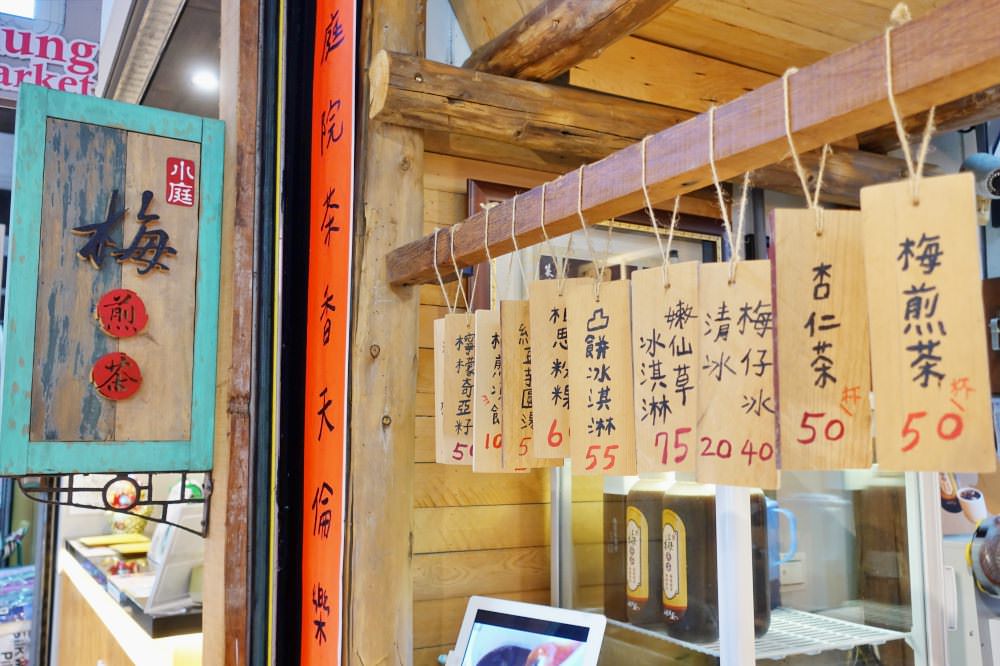 ung
arket
小庭
梅
煎
茶
庭院茶香天倫樂
檸檬奇亞籽
5
10
5
6
凸餅冰淇淋
55
嫩仙草
冰淇淋
75
梅仔冰
40
清冰
20
杏仁茶
50杯
梅煎茶
50杯